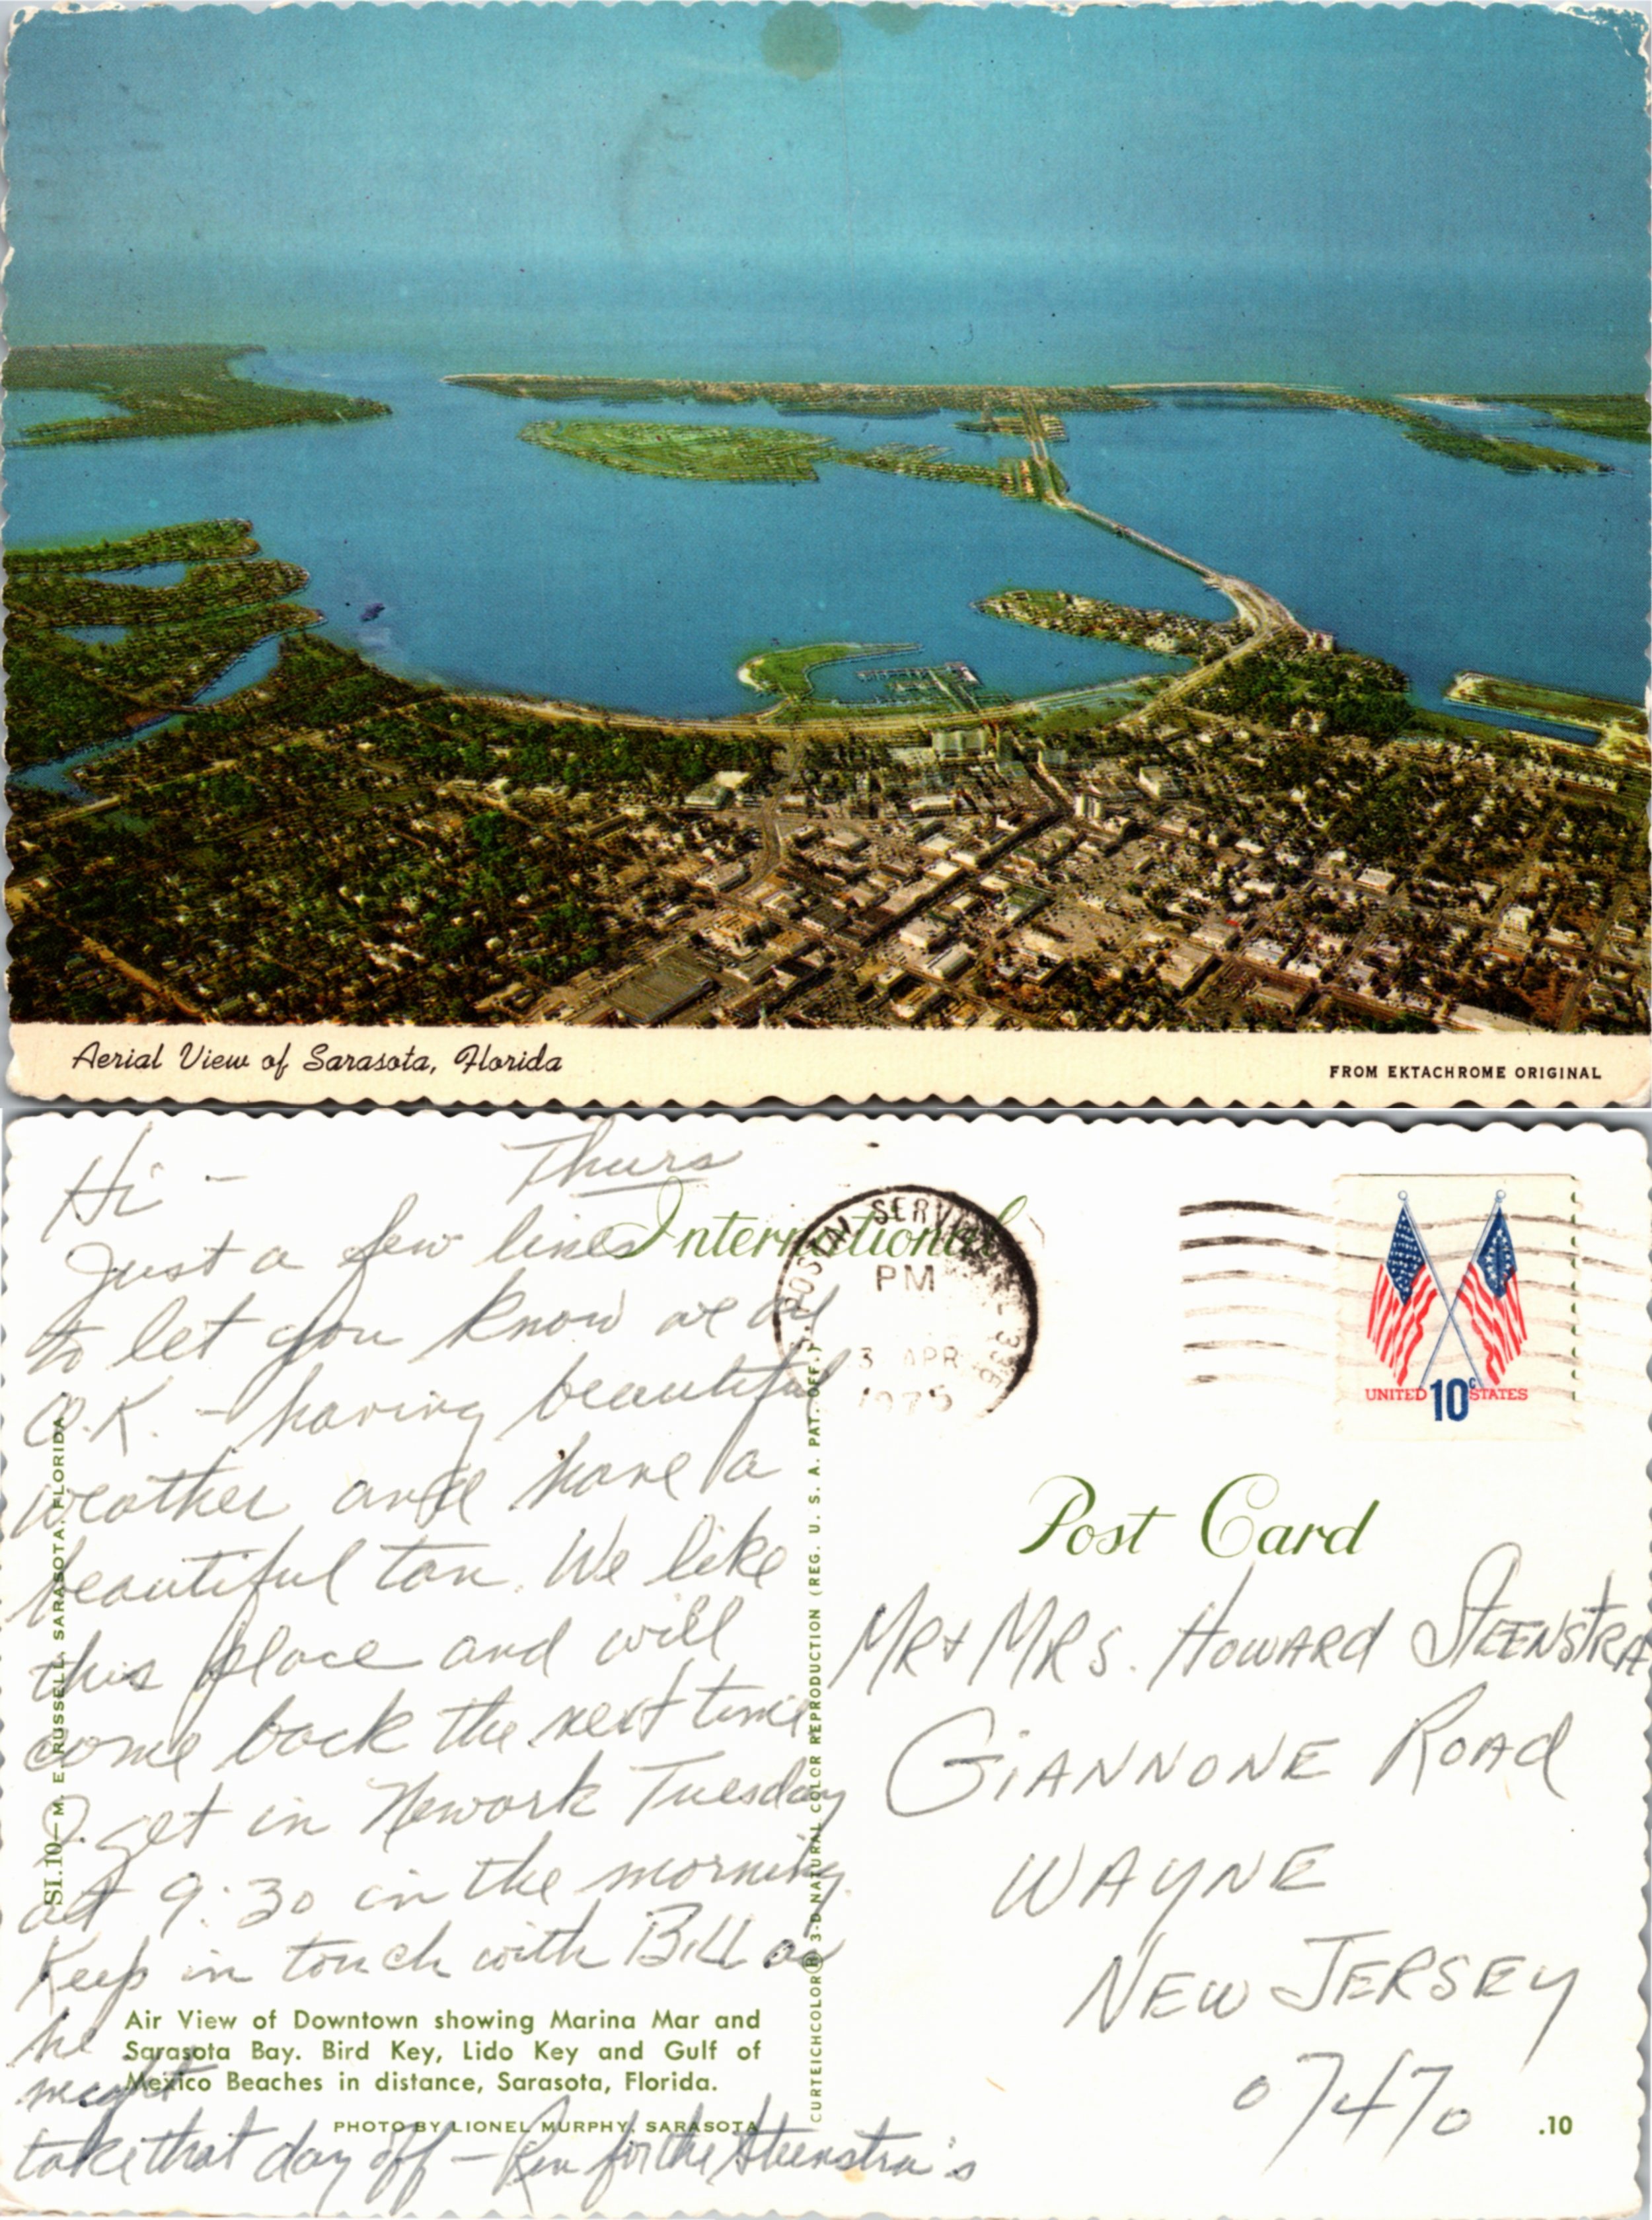 Aerial View of Sarasota, Florida
FROM EKTACHROME ORIGINAL
Hi – Thurs
Just a few lines
to let you know we are
O.K. – having beautiful
weather and have a
beautiful tan. We like
this place and will
come back the next time
I get in Newark Tuesday
at 9:30 in the morning.
Keep in touch with Bill as
he
might
take that day off – for the Steenstra's
International
SERV
PM
3 APR
1975
336
UNITED 10c STATES
Post Card
MR & MRS. HOWARD STEENSTRA
GIANNONE ROAD
WAYNE
NEW JERSEY
07470
SI.10—M. E. RUSSELL, SARASOTA, FLORIDA
Air View of Downtown showing Marina Mar and
Sarasota Bay. Bird Key, Lido Key and Gulf of
Mexico Beaches in distance, Sarasota, Florida.
PHOTO BY LIONEL MURPHY, SARASOTA
CURTEICHCOLOR® 3-D NATURAL COLOR REPRODUCTION (REG. U. S. A. PAT. OFF.)
.10